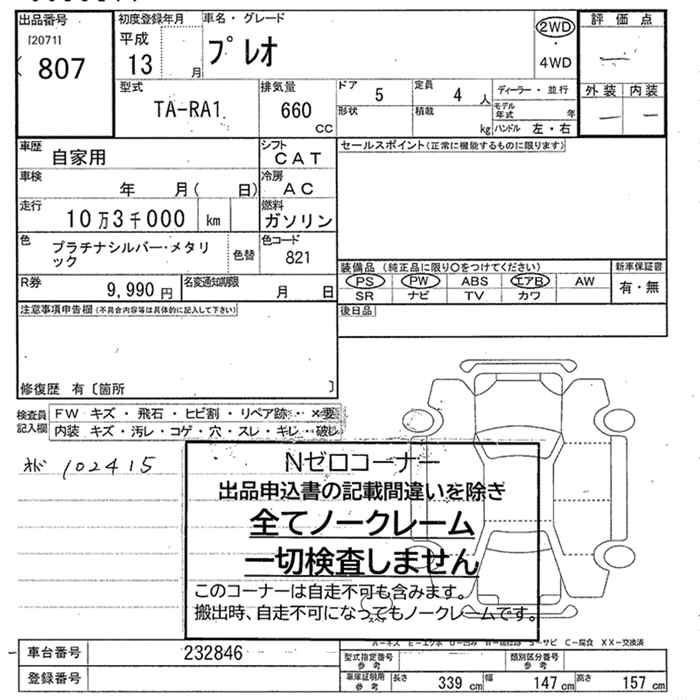 出品番号
[2071]
807
初度登録年月
平成
13 月
車名・グレード
プレオ
2WD
・
4WD
評価点
―
外装 内装
― ―
型式
TA-RA1
排気量
660
CC
ドア 5
形状
定員 4 人
積載 kg
ディーラー・並行
モデル年式 年
ハンドル 左・右
車歴
自家用
シフト
CAT
セールスポイント(正常に機能するものに限ります)
車検
年 月( 日)
冷房
AC
走行
10万3千000 km
燃料
ガソリン
色
プラチナシルバー・メタリ
ック
色替
色コード
821
装備品(純正品に限り○をつけてください)
新車保証書
PS PW ABS エアB AW
有・無
SR ナビ TV カワ
R券
9,990 円
名変通知期限
月 日
注意事項申告欄(不具合内容等は具体的に記入して下さい)
後日品
修復歴 有〔箇所 〕
検査員
記入欄
FW キズ・飛石・ヒビ割・リペア跡・×要
内装 キズ・汚レ・コゲ・穴・スレ・キレ・破レ
102415
Nゼロコーナー
出品申込書の記載間違いを除き
全てノークレーム
一切検査しません
このコーナーは自走不可も含みます。
搬出時、自走不可になってもノークレームです。
A－キズ E－エクボ
C－腐食 XX－交換済
車台番号
232846
型式指定番号
参考
類別区分番号
参考
登録番号
車庫証明用
参考
長さ 339 cm
幅 147 cm
高さ 157 cm